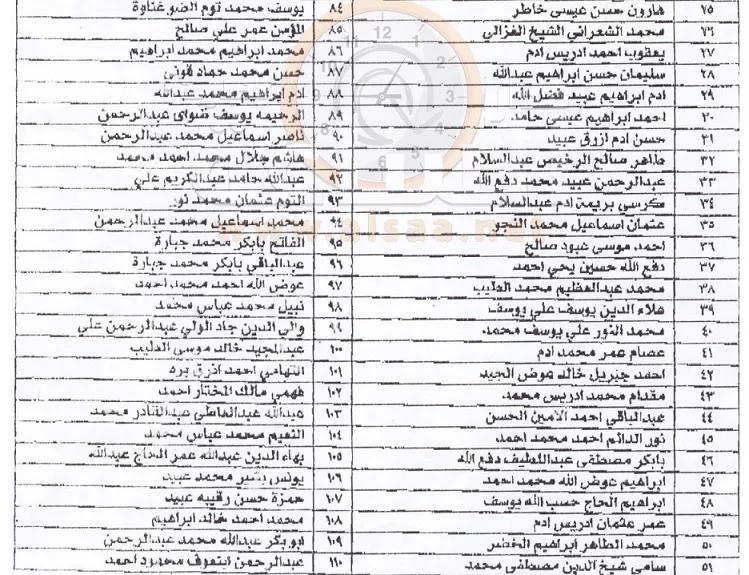 ٢٥ هارون حسن عيسى خاطر
٢٦ محمد الشعراني الشيخ الغزالي
٢٧ يعقوب احمد ادريس ادم
٢٨ سليمان حسن ابراهيم عبدالله
٢٩ ادم ابراهيم عبيد فضل الله
٣٠ احمد ابراهيم عيسى حامد
٣١ حسن ادم ازرق عبيد
٣٢ طاهر صالح الرخيص عبدالسلام
٣٣ عبدالرحمن عبيد محمد دفع الله
٣٤ مكرسي بريمة ادم عبدالسلام
٣٥ عثمان اسماعيل محمد النجو
٣٦ احمد موسى عبود صالح
٣٧ دفع الله حسين يحي احمد
٣٨ محمد عبدالعظيم محمد الطيب
٣٩ علاء الدين يوسف علي يوسف
٤٠ محمد النور علي يوسف محمد
٤١ عصام عمر محمد ادم
٤٢ احمد جبريل خالد عوض الجيد
٤٣ مقدام محمد ادريس محمد
٤٤ عبدالباقي احمد الامين الحسن
٤٥ نور الدائم احمد محمد احمد
٤٦ بابكر مصطفى عبداللطيف دفع الله
٤٧ ابراهيم عوض الله محمد احمد
٤٨ ابراهيم الحاج حسب الله يوسف
٤٩ عمر عثمان ادريس ادم
٥٠ محمد الطاهر ابراهيم الخضر
٥١ سامي شيخ الدين مصطفى محمد
٨٤ يوسف محمد توم الضو غناوة
٨٥ المؤمن عمر علي صالح
٨٦ محمد ابراهيم محمد ابراهيم
٨٧ حسن محمد حماد
٨٨ ادم ابراهيم محمد عبدالله
٨٩ الرحيمه يوسف ضواي عبدالرحمن
٩٠ ناصر اسماعيل محمد عبدالرحمن
٩١ هاشم جلال محمد احمد محمد
٩٢ عبدالله حامد عبدالكريم علي
٩٣ التوم عثمان محمد نور
٩٤ محمد اسماعيل محمد عبدالرحمن
٩٥ الفاتح بابكر محمد جبارة
٩٦ عبدالباقي بابكر محمد جبارة
٩٧ عوض الله احمد محمد احمد
٩٨ نبيل محمد عباس محمد
٩٩ والي الدين جاد الولي عبدالرحمن علي
١٠٠ عبدالمجيد خالد موسى الطيب
١٠١ التهامي احمد ازرق بره
١٠٢ فهمي مالك المختار احمد
١٠٣ عبدالله عبدالعاطي عبدالقادر محمد
١٠٤ النعيم محمد عباس محمد
١٠٥ بهاء الدين عبدالله عمر الحاج عبدالله
١٠٦ يونس بشير محمد عبيد
١٠٧ حمزة حسن رقيبه عبيد
١٠٨ محمد احمد خالد ابراهيم
١٠٩ ابو بكر عبدالله محمد عبدالرحمن
١١٠ عبدالرحمن محمود احمد
www.alsaa.net